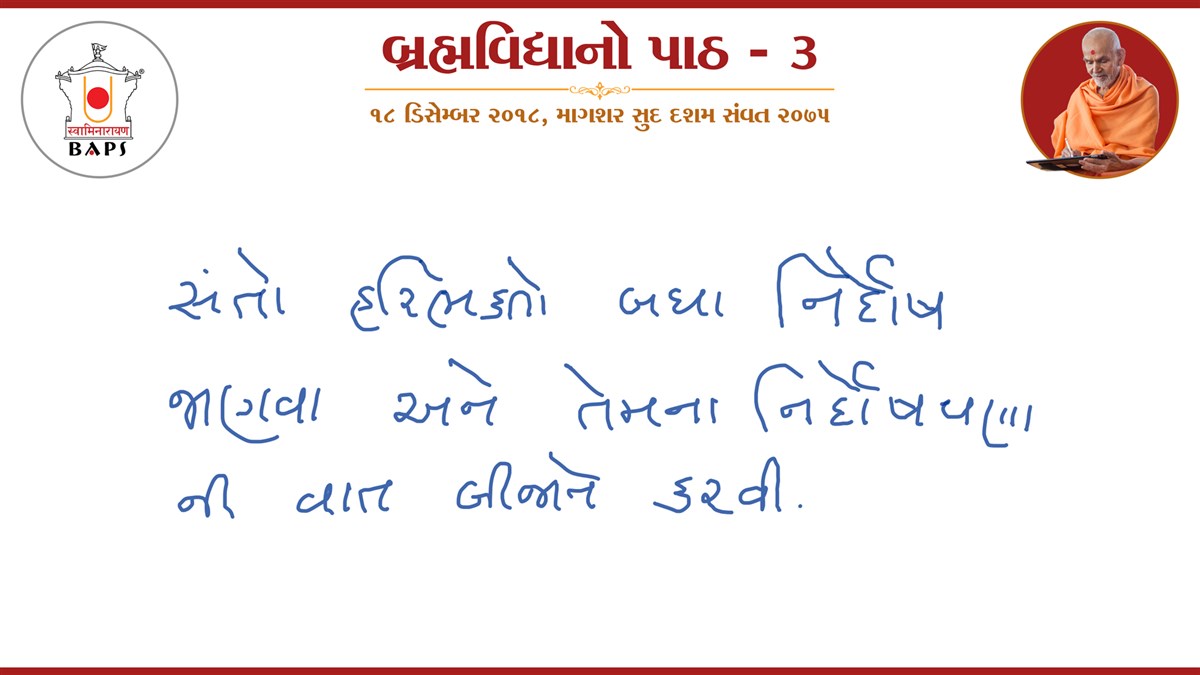 બ્રહ્મવિદ્યાનો પાઠ - ૩
૧૮ ડિસેમ્બર ૨૦૧૮, માગશર સુદ દશમ સંવત ૨૦૭૫
स्वामिनारायण
BAPS
સંતો હરિભક્તો બધા નિર્દોષ
જાણવા અને તેમના નિર્દોષપણા
ની વાત બીજાને કરવી.